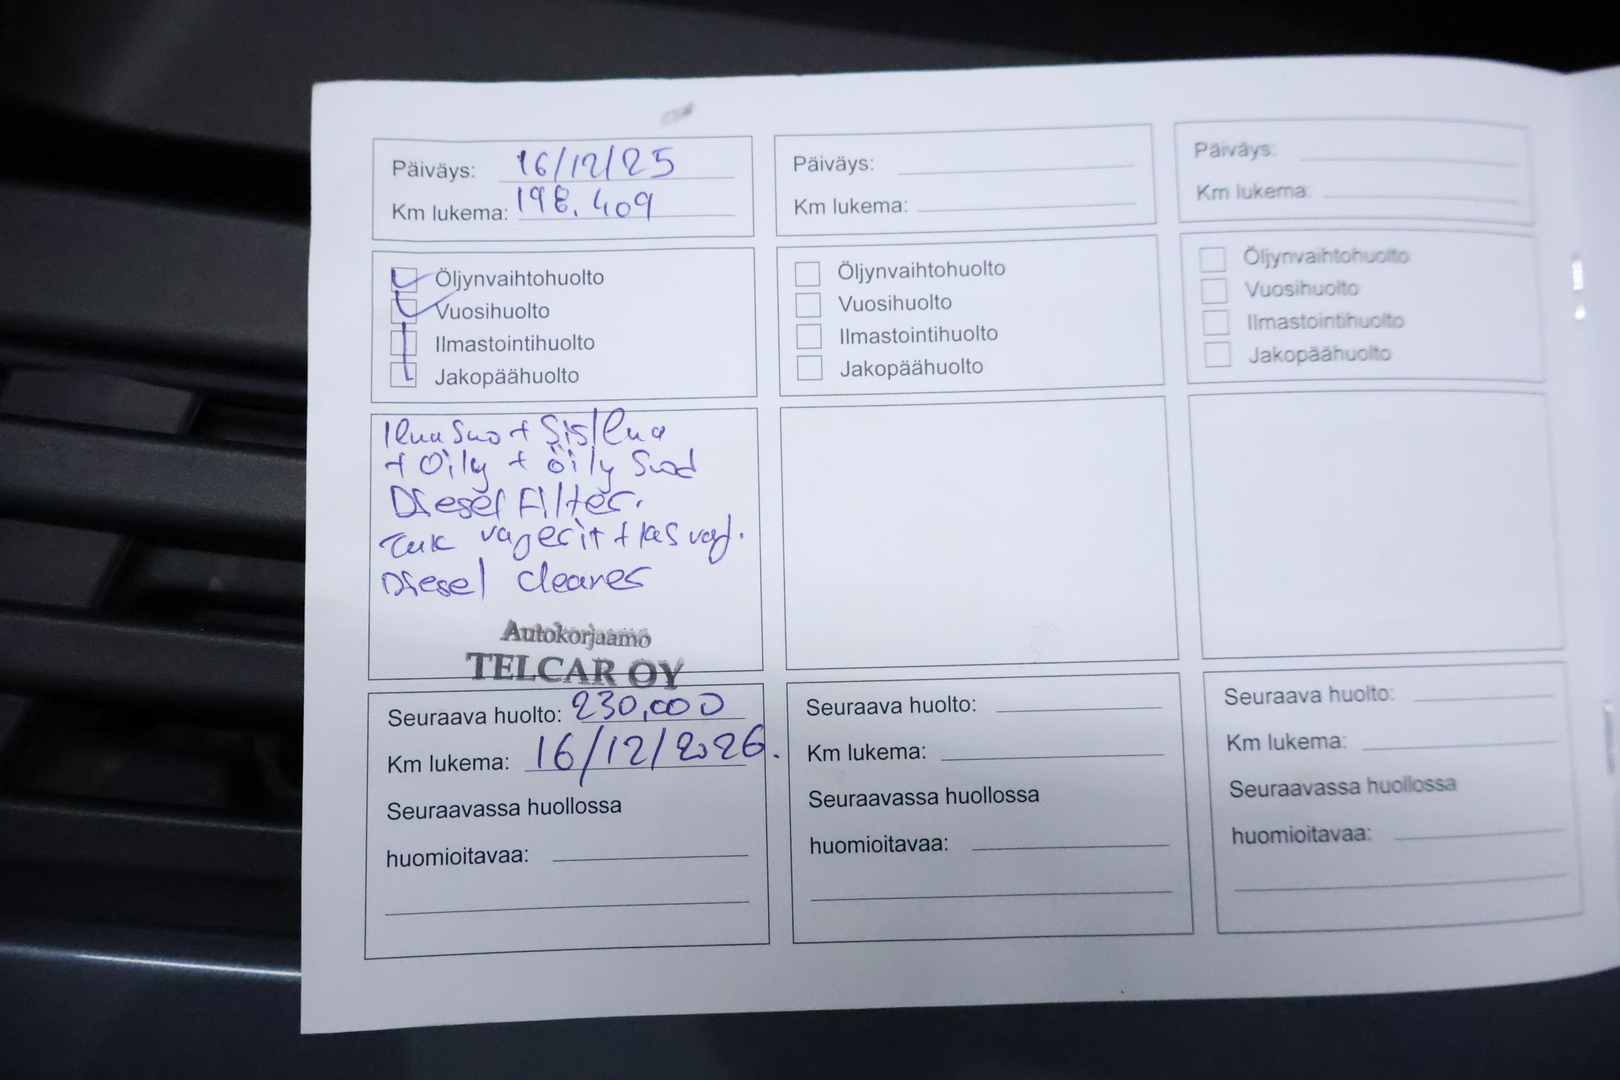 Päiväys: 16/12/25
Km lukema: 198.409
Öljynvaihtohuolto
Vuosihuolto
Ilmastointihuolto
Jakopäähuolto
Ilma Suo + Sis/Ilma
+ Oily + öily Suod
Diesel Filter.
vagerit +
Diesel cleares
Autokorjaamo
TELCAR OY
Seuraava huolto: 230,000
Km lukema: 16/12/2026.
Seuraavassa huollossa
huomioitavaa:
Päiväys:
Km lukema:
Öljynvaihtohuolto
Vuosihuolto
Ilmastointihuolto
Jakopäähuolto
Seuraava huolto:
Km lukema:
Seuraavassa huollossa
huomioitavaa:
Päiväys:
Km lukema:
Öljynvaihtohuolto
Vuosihuolto
Ilmastointihuolto
Jakopäähuolto
Seuraava huolto:
Km lukema:
Seuraavassa huollossa
huomioitavaa: